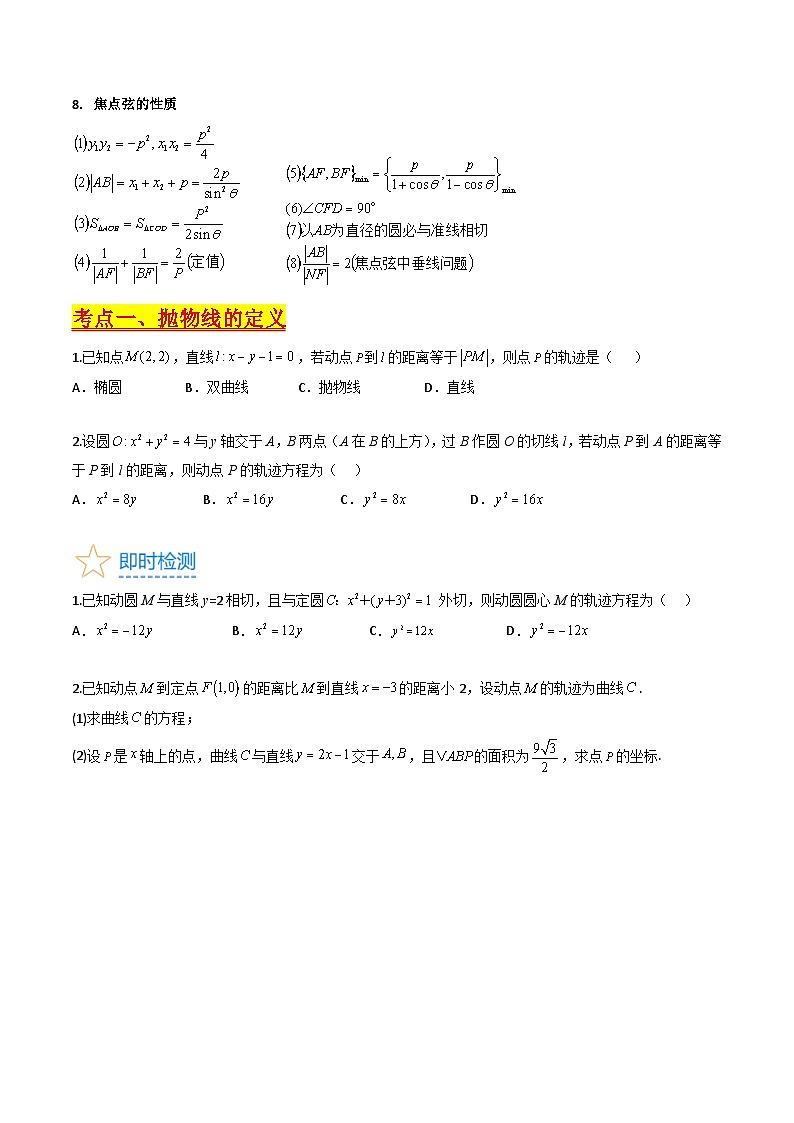 8. 焦点弦的性质
(1)y₁y₂ = −p², x₁x₂ = p²/4
(2)|AB| = x₁ + x₂ + p = 2p/sin²θ
(3)S△AOB = S△COD = P²/(2sinθ)
(4)1/|AF| + 1/|BF| = 2/P(定值)
(5){AF, BF}min = {p/(1+cosθ), p/(1−cosθ)}min
(6)∠CFD = 90°
(7)以AB为直径的圆必与准线相切
(8)|AB|/|NF| = 2(焦点弦中垂线问题)
考点一、抛物线的定义
1.已知点M(2,2)，直线l: x − y −1 = 0，若动点P到l的距离等于|PM|，则点P的轨迹是（ ）
A．椭圆 B．双曲线 C．抛物线 D．直线
2.设圆O: x² + y² = 4与y轴交于A，B两点（A在B的上方），过B作圆O的切线l，若动点P到A的距离等
于P到l的距离，则动点P的轨迹方程为（ ）
A．x² = 8y B．x² = 16y C．y² = 8x D．y² = 16x
即时检测
1.已知动圆M与直线y=2相切，且与定圆C：x²+(y+3)² = 1 外切，则动圆圆心M的轨迹方程为（ ）
A．x² = −12y B．x² = 12y C．y² = 12x D．y² = −12x
2.已知动点M到定点F(1,0)的距离比M到直线x = −3的距离小2，设动点M的轨迹为曲线C．
(1)求曲线C的方程；
(2)设P是x轴上的点，曲线C与直线y = 2x −1交于A, B，且∨ABP的面积为9√3/2，求点P的坐标．